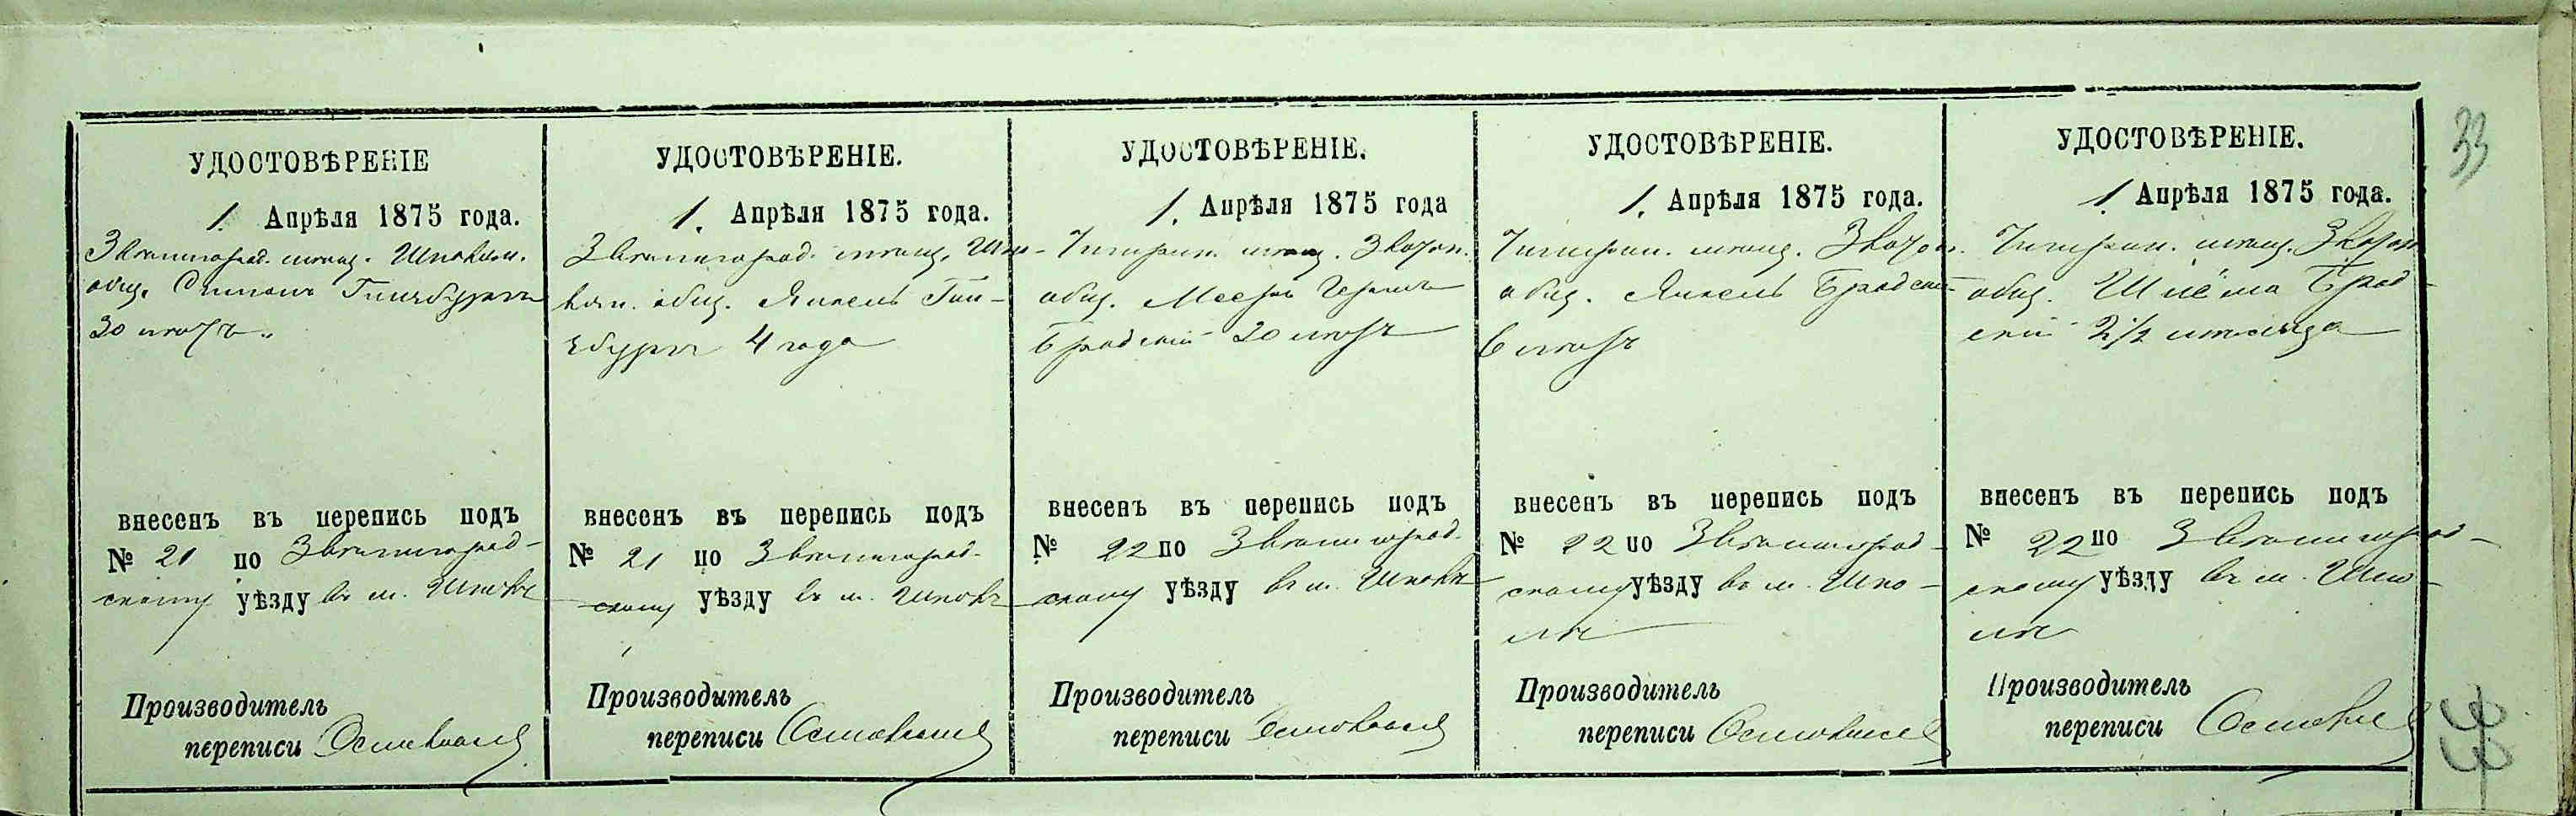 УДОСТОВѢРЕНІЕ
1. Апрѣля 1875 года.
Звенигород. мѣщ. Шполян.
общ. Симонъ Гинзбургъ
30 лѣтъ.
внесенъ въ перепись подъ
№ 21 по Звенигород-
скому уѣзду въ м. Шполѣ
Производитель
переписи
УДОСТОВѢРЕНІЕ.
1. Апрѣля 1875 года.
Звенигород. мѣщ. Шпо-
лян. общ. Янкель Гин-
збургъ 4 года
внесенъ въ перепись подъ
№ 21 по Звенигород-
скому уѣзду въ м. Шполѣ
Производитель
переписи
УДОСТОВѢРЕНІЕ.
1. Апрѣля 1875 года
Чигирин. мѣщ.
общ. Мееръ
Бродскій 30 лѣтъ
внесенъ въ перепись подъ
№ 22 по Звенигород-
скому уѣзду въ м. Шполѣ
Производитель
переписи
УДОСТОВѢРЕНІЕ.
1. Апрѣля 1875 года.
Чигирин. мѣщ.
общ. Янкель Бродскій
6 лѣтъ
внесенъ въ перепись подъ
№ 22 по Звенигород-
скому уѣзду въ м. Шпо-
лѣ
Производитель
переписи
УДОСТОВѢРЕНІЕ.
1. Апрѣля 1875 года.
Чигирин. мѣщ.
общ. Шлёма Брод-
скій 2½ мѣсяца
внесенъ въ перепись подъ
№ 22 по Звенигород-
скому уѣзду въ м. Шпо-
лѣ
Производитель
переписи
33